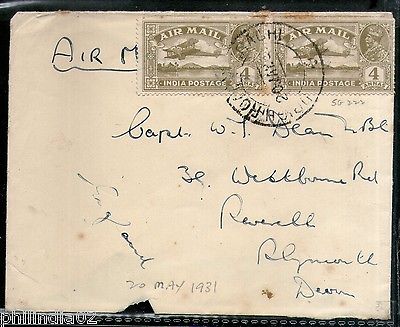 AIR MAIL
INDIA POSTAGE
4
AIR MAIL
INDIA POSTAGE
4
AIR M
SG 222
Capt. W. J. Dean
32 Westbourne Rd
England
Peverell
Plymouth
Devon
20 MAY 1931
philindia02